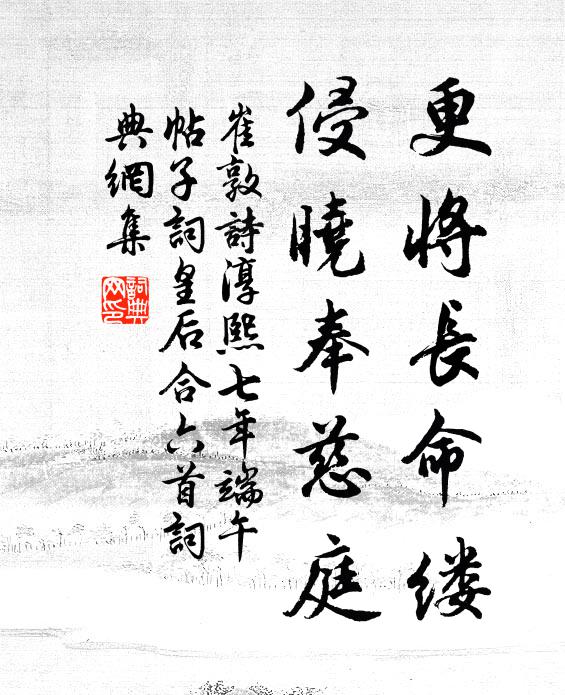 更将長命缕
侵曉奉慈庭
崔敦詩淳熙七年端午
帖子詞皇后合六首詞
典網集
詞典
网印